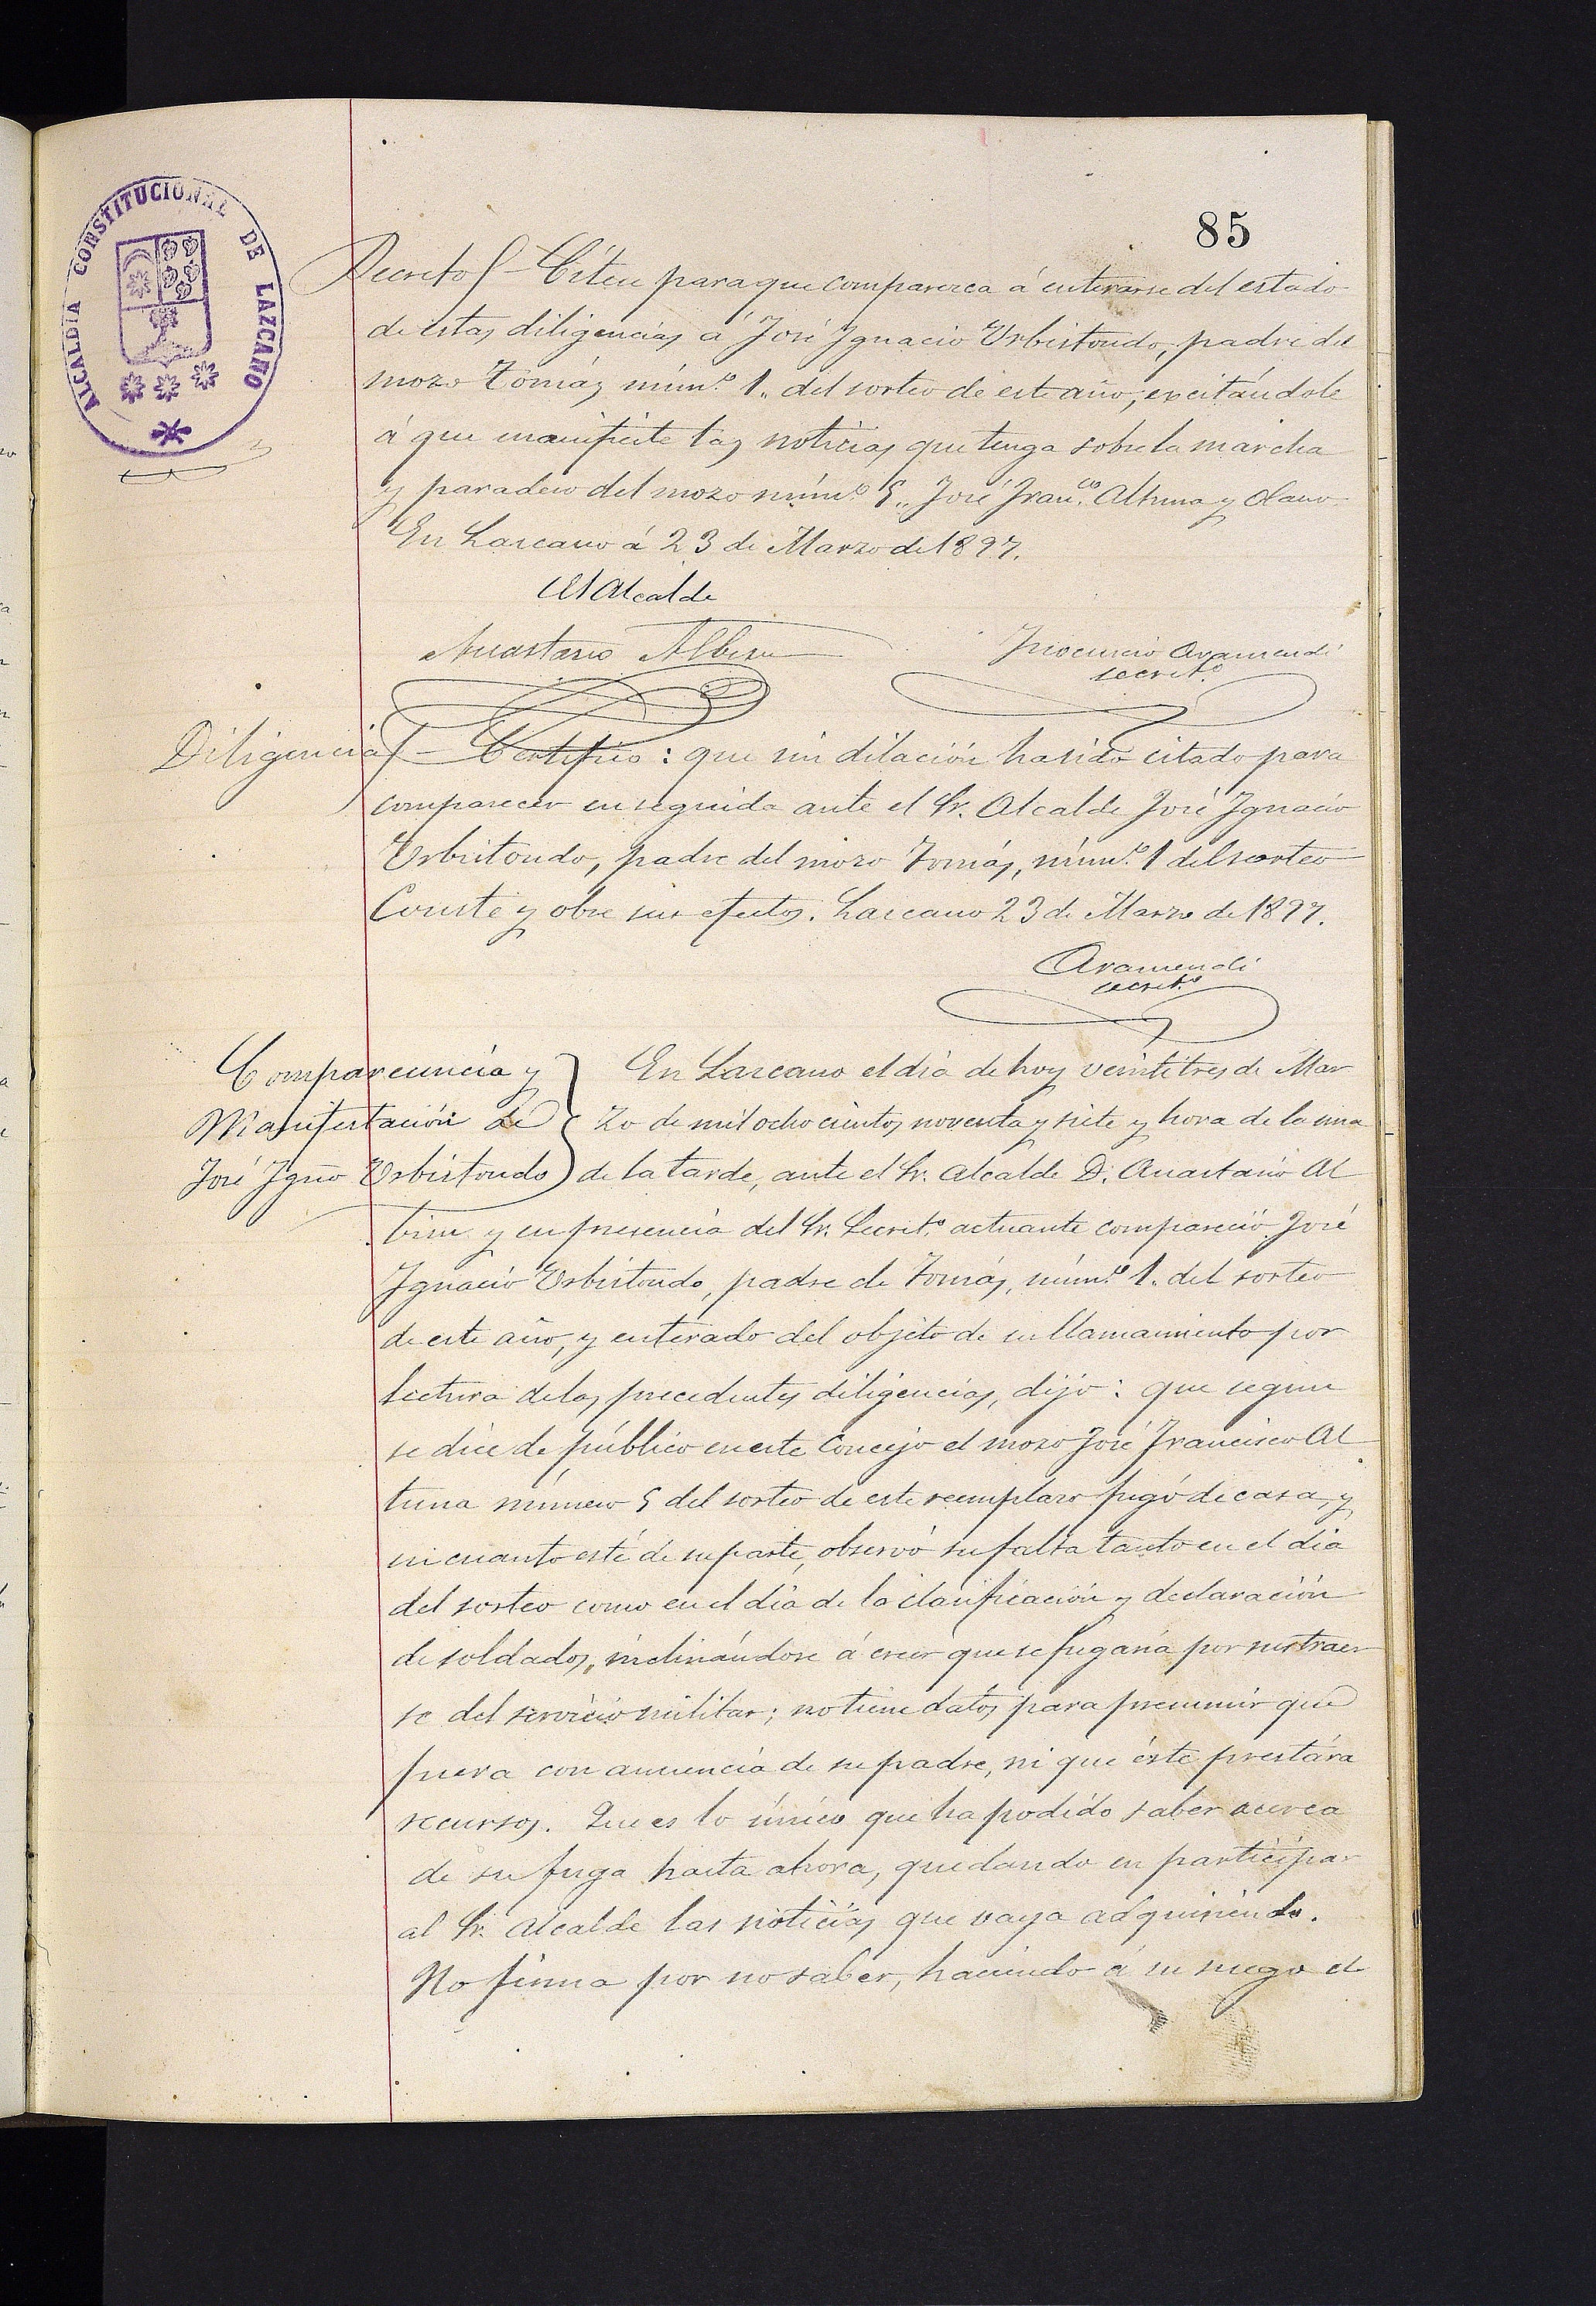 85
ALCALDIA CONSTITUCIONAL DE LAZCANO
Decreto - Citese para que comparezca á enterarse del estado
de estas diligencias á José Ignacio Urbistondo, padre del
mozo Tomás núm.º 1,, del sorteo de este año, excitándole
á que manifieste las noticias que tenga sobre la marcha
y paradero del mozo núm.º 5,, José Fran.co Altuna y Olano
En Lazcano á 23 de Marzo de 1897.
El Alcalde
Anastasio Albisu
Inocencio Aramendi
secret.º
Diligencia - Certifico: que sin dilación ha sido citado para
comparecer enseguida ante el Sr. Alcalde José Ignacio
Urbistondo, padre del mozo Tomás, núm.º 1 del sorteo
Conste y obre sus efectos. Lazcano 23 de Marzo de 1897.
Aramendi
secret.º
Comparecencia y
Manifestación de
José Igno Urbistondo
En Lazcano el dia de hoy veintitres de Mar
zo de mil ochocientos noventa y siete y hora de la una
de la tarde, ante el Sr. Alcalde D. Anastasio Al
bisu y en presencia del Sr. Secret.º actuante compareció José
Ignacio Urbistondo, padre de Tomás, núm.º 1. del sorteo
de este año, y enterado del objeto de su llamamiento por
lectura de las precedentes diligencias, dijo: que segun
se dice de público en este Concejo el mozo José Francisco Al
tuna número 5 del sorteo de este reemplazo fugó de casa, y
en cuanto esté de su parte, observó su falta tanto en el dia
del sorteo como en el dia de la clasificación y declaración
de soldados, inclinándose á creer que se fugaria por sustraer
se del servicio militar; no tiene datos para presumir que
fuera con anuencia de su padre, ni que éste prestára
recursos. Que es lo único que ha podido saber acerca
de su fuga hasta ahora, quedando en participar
al Sr. Alcalde las noticias que vaya adquiriendo.
No firma por no saber, haciendo á su ruego el